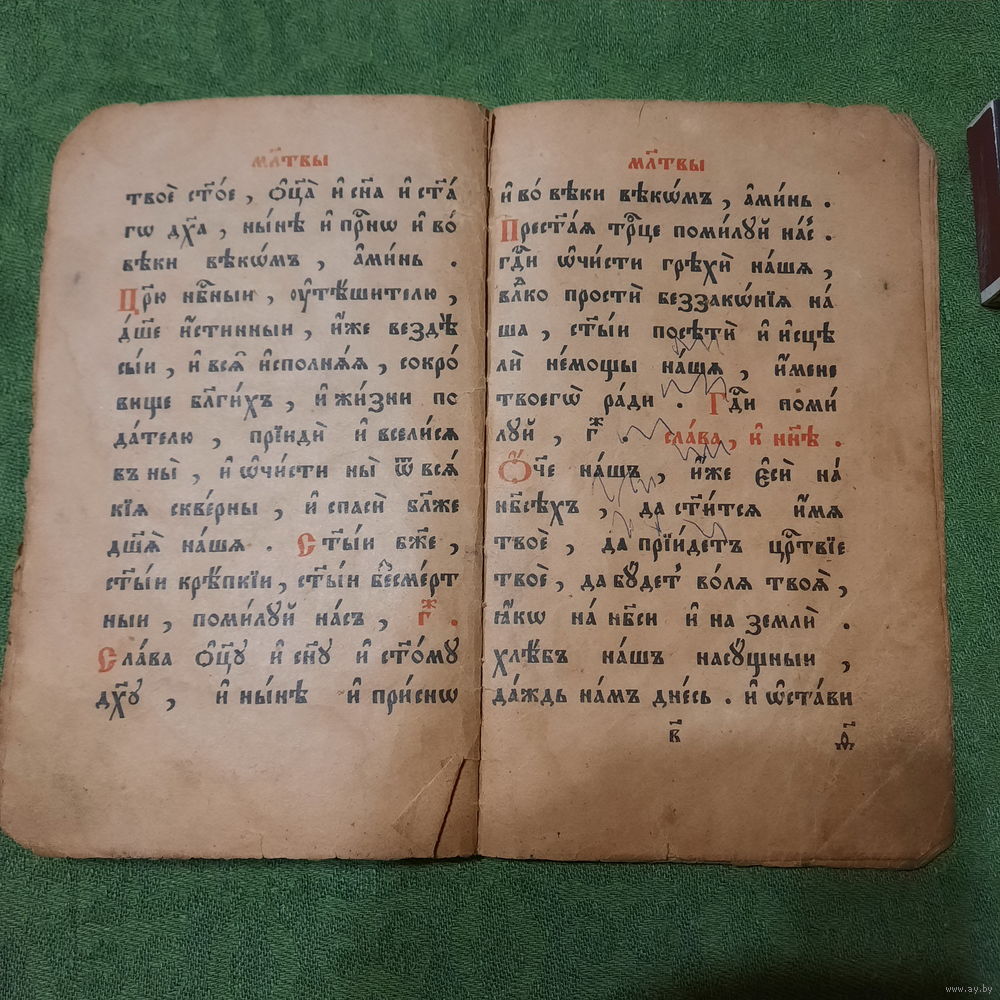 мл҃твы
твоѐ ст҃о́е , ѻ҆ц҃а̀ и҆ сн҃а и҆ ст҃а́
гѡ дх҃а , ны́нѣ и҆ прⷭ҇нѡ и҆ во́
вѣки вѣкѡ́мъ , а҆ми́нь .
Цр҃ю нбⷭ҇ныи , оу҆тѣ́шителю ,
дш҃е и҆́стинныи , и҆́же вездѣ̀
сы́и , и҆ всѧ̑ и҆сполнѧ́ѧ , сокро́
вище бл҃ги́хъ , и҆ жи́зни по
да́телю , прїидѝ и҆ всели́сѧ
въ ны̀ , и҆ ѡ҆чи́сти ны̀ ѿ всѧ́
кїѧ скве́рны , и҆ спасѝ бл҃же
дш҃а̀ на́шѧ . Ст҃ы́и бж҃е ,
ст҃ы́и крѣ́пкїи , ст҃ы́и бе҆сме́рт
ныи , поми́лꙋй на́съ , г҃ⷤ .
Сла́ва ѻ҆ц҃ꙋ̀ и҆ сн҃ꙋ и҆ ст҃о́мꙋ
дх҃ꙋ , и҆ ны́нѣ и҆ при́снѡ
мл҃твы
и҆ во́ вѣки вѣкѡ́мъ , а҆ми́нь .
Прест҃а́ѧ трⷪ҇це поми́лꙋй на́с .
гдⷭ҇и ѡ҆чи́сти грѣхѝ на́шѧ ,
влⷣко простѝ беззако́нїѧ на́
ша , ст҃ы́и посѣтѝ и҆ и҆сцѣ
лѝ не́мощы на́шѧ , и҆́мене
твоегѡ̀ ра́ди . Гдⷭ҇и поми́
лꙋй , г҃ⷤ . сла́ва , и҆ нн҃ѣ .
Ѻ҆́ч҃е на́шъ , и҆́же є҆сѝ на́
нб҃сѣ́хъ , да ст҃и́тсѧ и҆́мѧ
твоѐ , да прїи́детъ црⷭ҇твїе
твоѐ , да бꙋ́детъ во́лѧ твоѧ̀ ,
ꙗ҆́кѡ на́ нб҃си и҆ на землѝ .
хлѣ́бъ на́шъ насꙋ́щныи ,
да́ждь на́мъ дне́сь . и҆ ѡ҆ста́ви
в҃